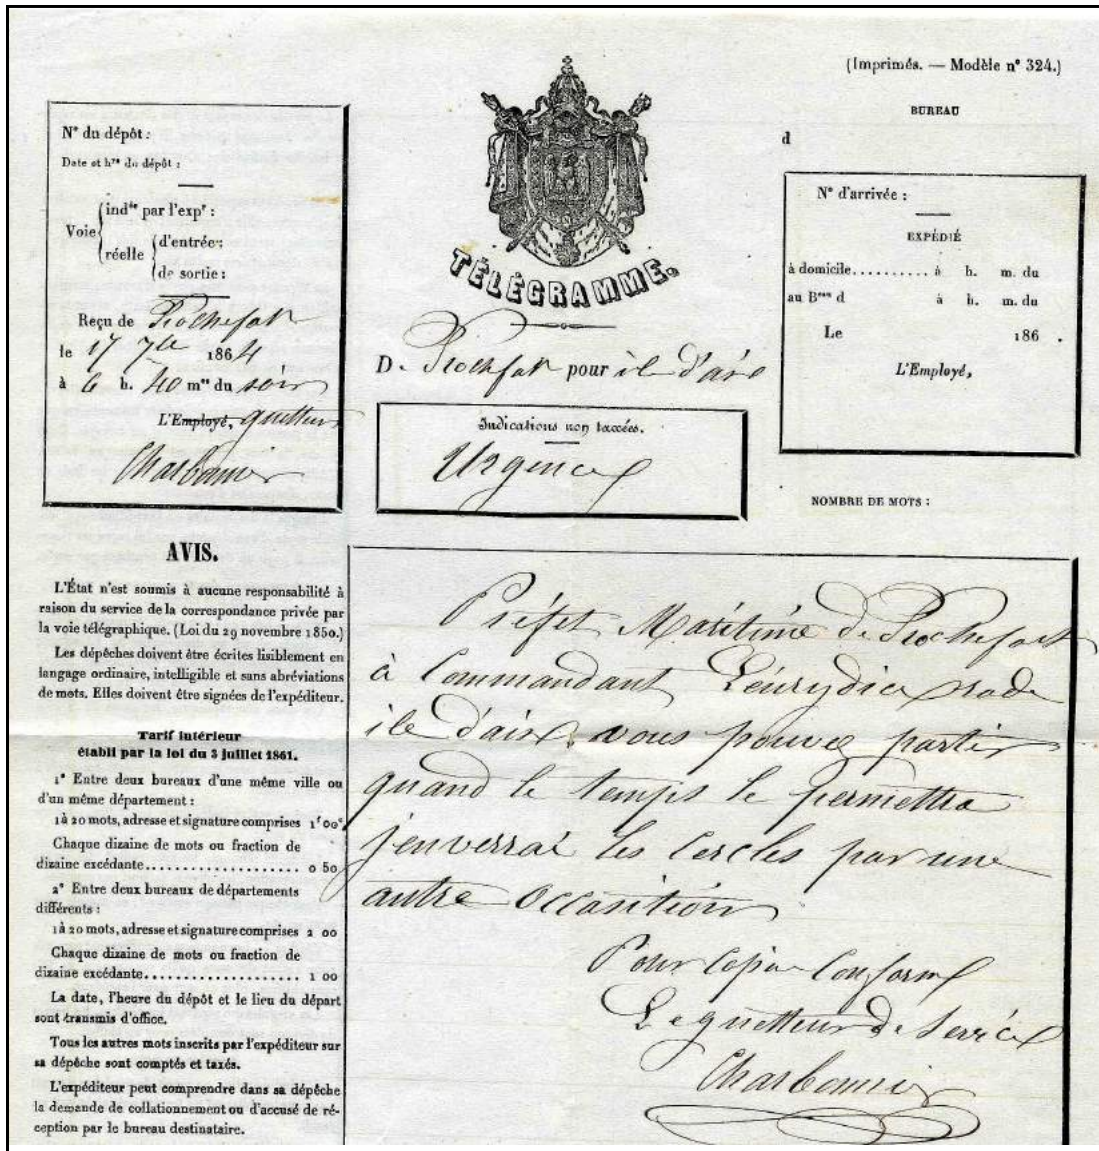 (Imprimés. — Modèle n° 324.)
N° du dépôt :
Date et h.res du dépôt :
Voie
ind.ée par l'exp.r :
réelle
d'entrée :
de sortie :
Reçu de Rochefort
le 17 7bre 1864
à 6 h. 40 m.es du soir
L'Employé, guetteur
Charbonnier
TÉLÉGRAMME.
D. Rochefort pour île d'aix
Indications non taxées.
Urgence
BUREAU
d
N° d'arrivée :
EXPÉDIÉ
à domicile.......... à h. m. du
au B.eau d à h. m. du
Le 186 .
L'Employé,
NOMBRE DE MOTS :
AVIS.
L'État n'est soumis à aucune responsabilité à
raison du service de la correspondance privée par
la voie télégraphique. (Loi du 29 novembre 1850.)
Les dépêches doivent être écrites lisiblement en
langage ordinaire, intelligible et sans abréviations
de mots. Elles doivent être signées de l'expéditeur.
Tarif intérieur
établi par la loi du 3 juillet 1861.
1° Entre deux bureaux d'une même ville ou
d'un même département :
1 à 20 mots, adresse et signature comprises 1f 00c
Chaque dizaine de mots ou fraction de
dizaine excédante.................... 0 50
2° Entre deux bureaux de départements
différents :
1 à 20 mots, adresse et signature comprises 2 00
Chaque dizaine de mots ou fraction de
dizaine excédante.................... 1 00
La date, l'heure du dépôt et le lieu du départ
sont transmis d'office.
Tous les autres mots inscrits par l'expéditeur sur
sa dépêche sont comptés et taxés.
L'expéditeur peut comprendre dans sa dépêche
la demande de collationnement ou d'accusé de ré-
ception par le bureau destinataire.
Préfet Maritime de Rochefort
à Commandant L'eurydice rade
île d'aix. vous pouvez partir
quand le temps le permettra
j'enverrai les cercles par une
autre occasition
Pour copie conforme
Le guetteur de Service
Charbonnier